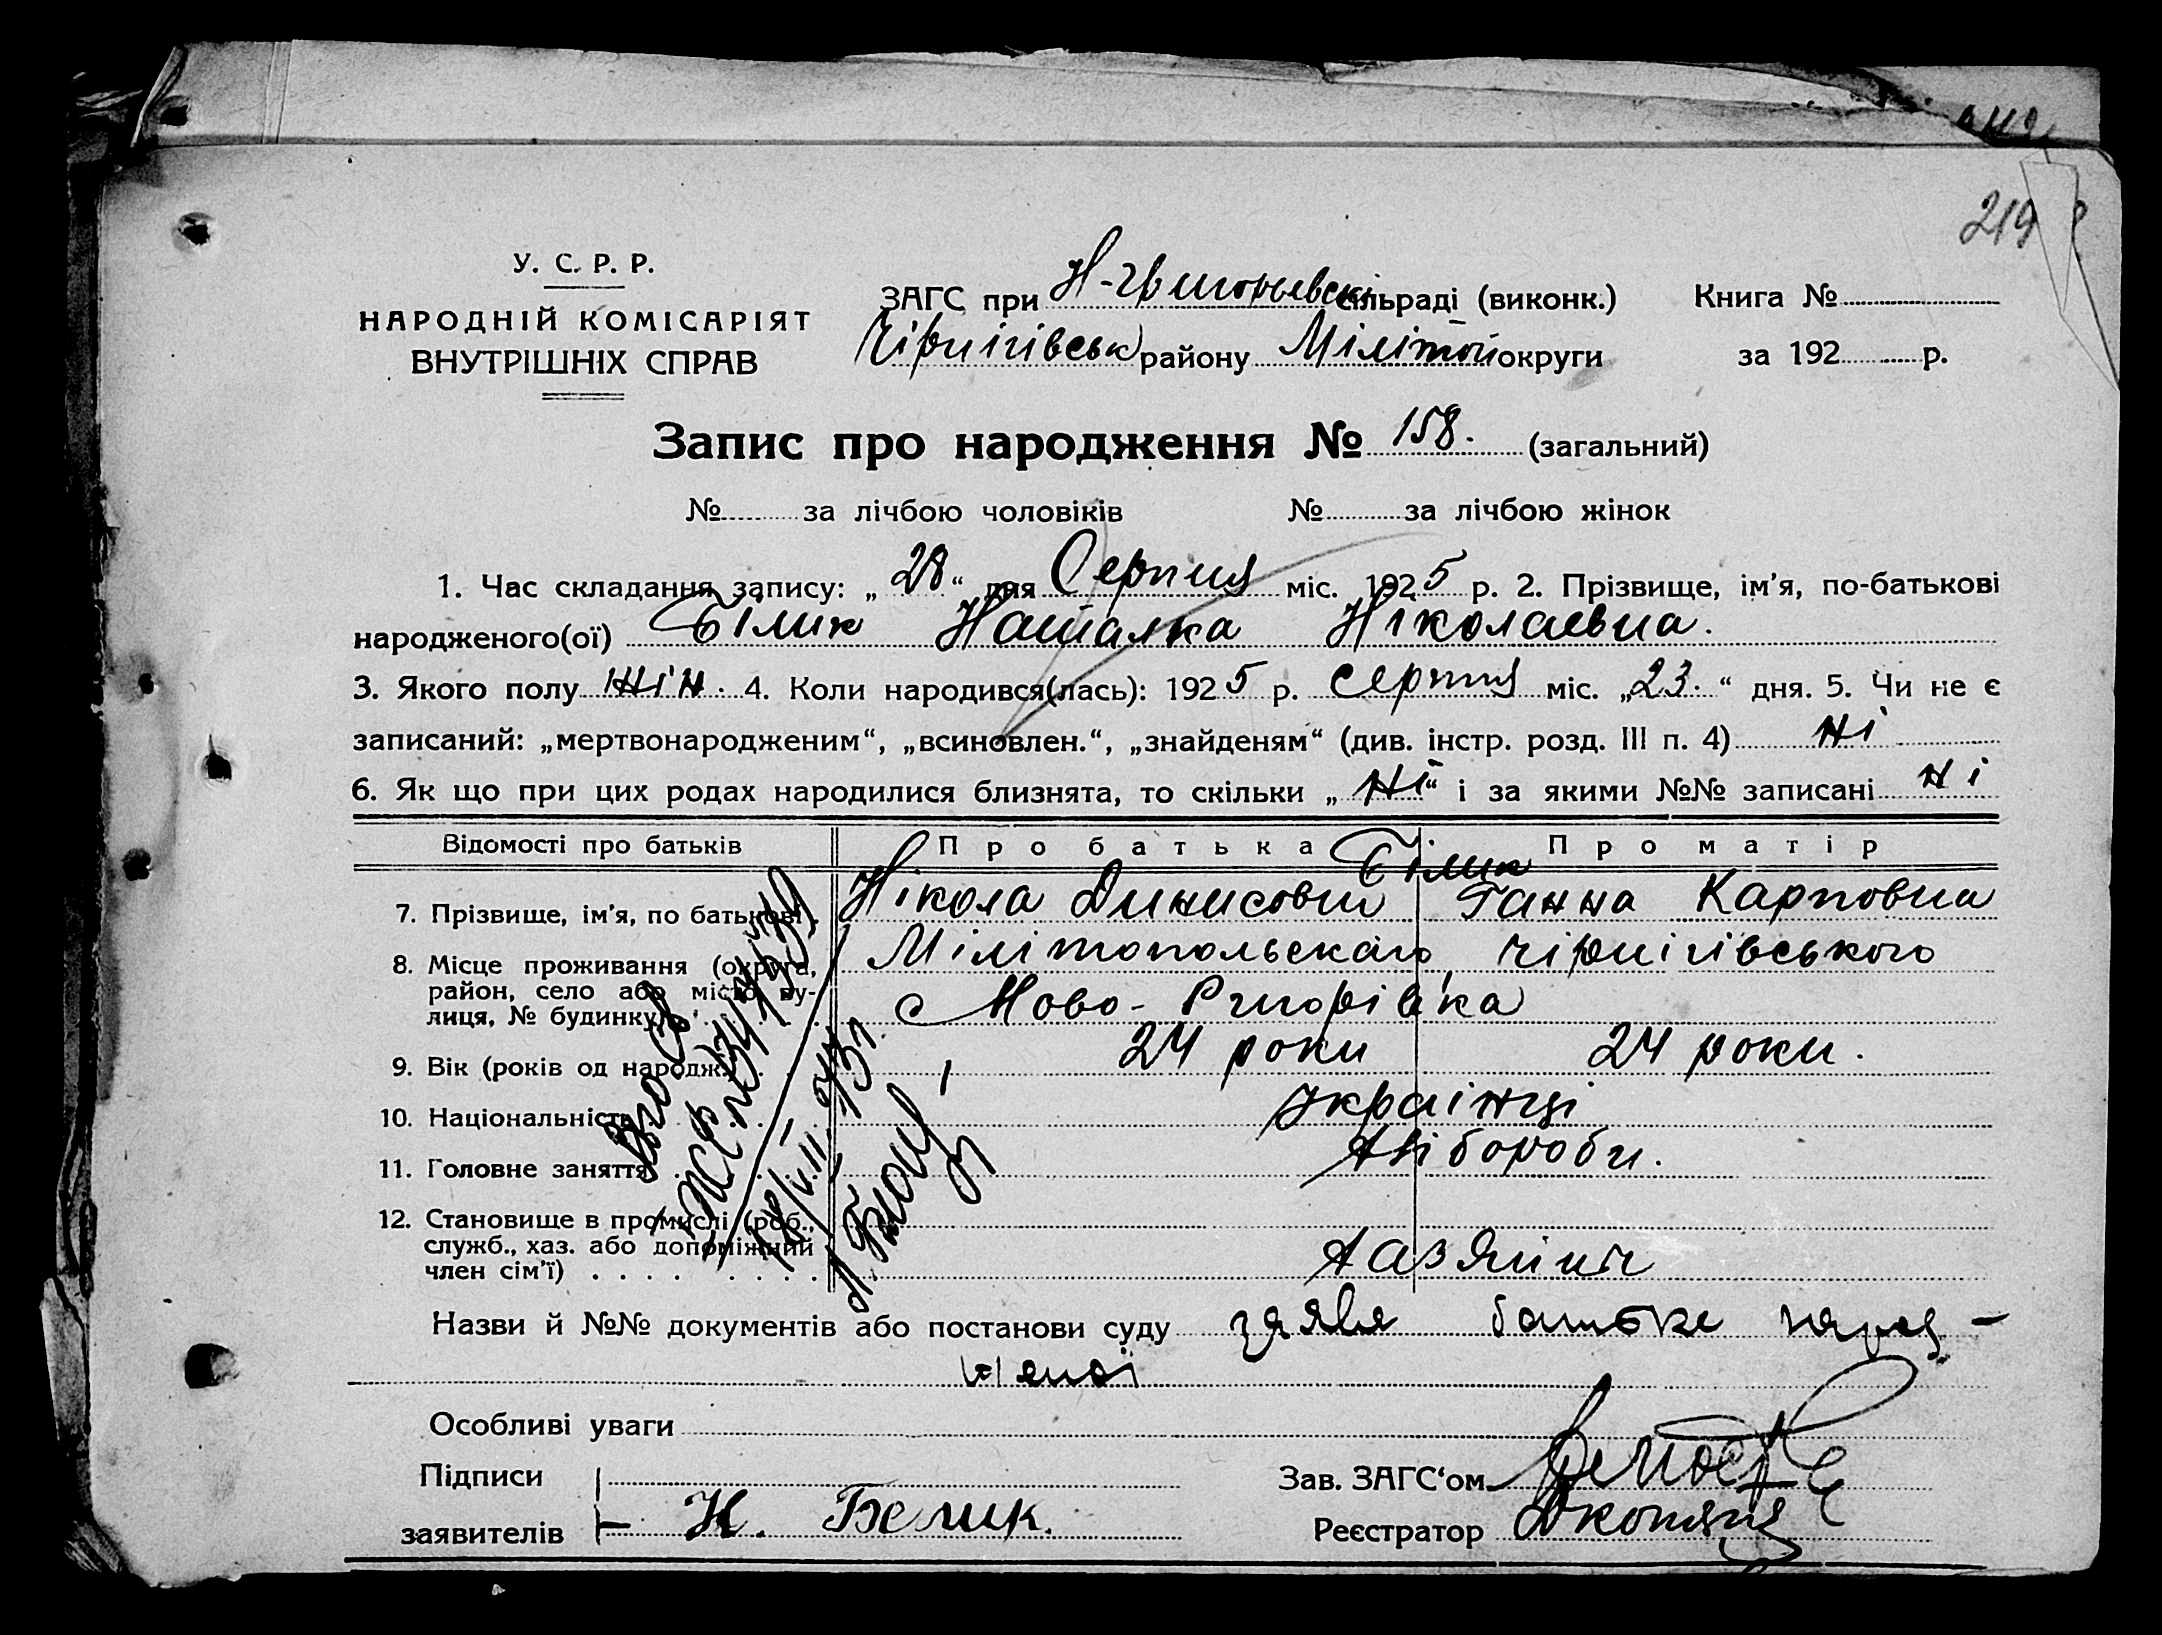 219
У. С. Р. Р.
НАРОДНІЙ КОМІСАРІЯТ
ВНУТРІШНІХ СПРАВ
ЗАГС при Н-Григорьевск сільраді (виконк.) Книга №
Чірнігівськ району Міліто́й округи за 192 р.
Запис про народження № 158. (загальний)
№ за лічбою чоловіків № за лічбою жінок
1. Час складання запису: „ 28 “ дня Серпня міс. 1925 р. 2. Прізвище, ім’я, по-батькові
народженого(ої) Білик Наталка Ніколаевна.
3. Якого полу жін. 4. Коли народився(лась): 1925 р. серпня міс. „ 23. “ дня. 5. Чи не є
записаний: „мертвонародженим“, „всиновлен.“, „знайденям“ (див. інстр. розд. III п. 4) ні
6. Як що при цих родах народилися близнята, то скільки „ ні “ і за якими №№ записані ні
Відомості про батьків Про батька Про матір
Білик
7. Прізвище, ім’я, по батькові Нікола Динисович Ганна Карповна
8. Місце проживання (округа, район, село або місто, вулиця, № будинку) Мілітопольскаго, чірнігівського
с Ново-Григорівка
9. Вік (років од народж.) 24 роки 24 роки.
10. Національність Украінці
11. Головне заняття Хліборобы.
12. Становище в промислі (роб.,
служб., хаз. або допоміжний
член сім’ї) хазяіни
Назви й №№ документів або постанови суду заява батька народ-
женої
Особливі уваги
Підписи
заявителів Н. Белик.
Зав. ЗАГС‘ом
Реєстратор